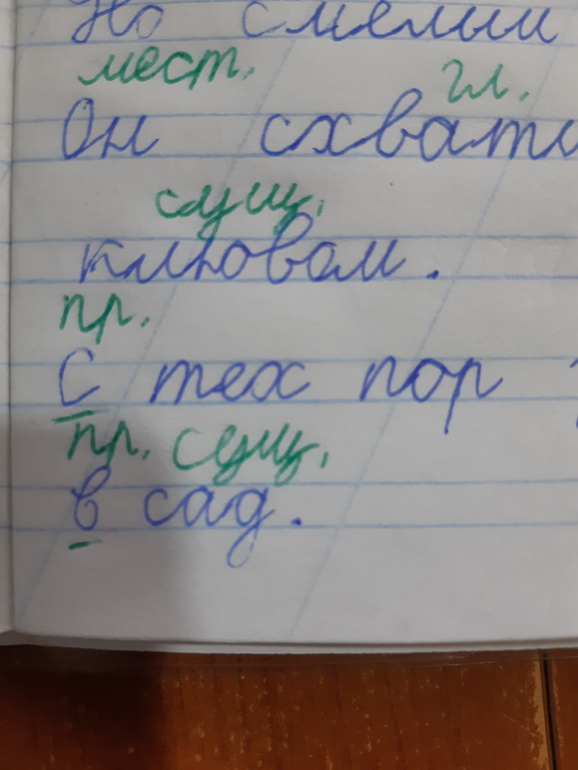 Но смелый
мест. гл.
Он
сущ.
клювом.
пр.
С тех пор
пр. сущ.
в сад.